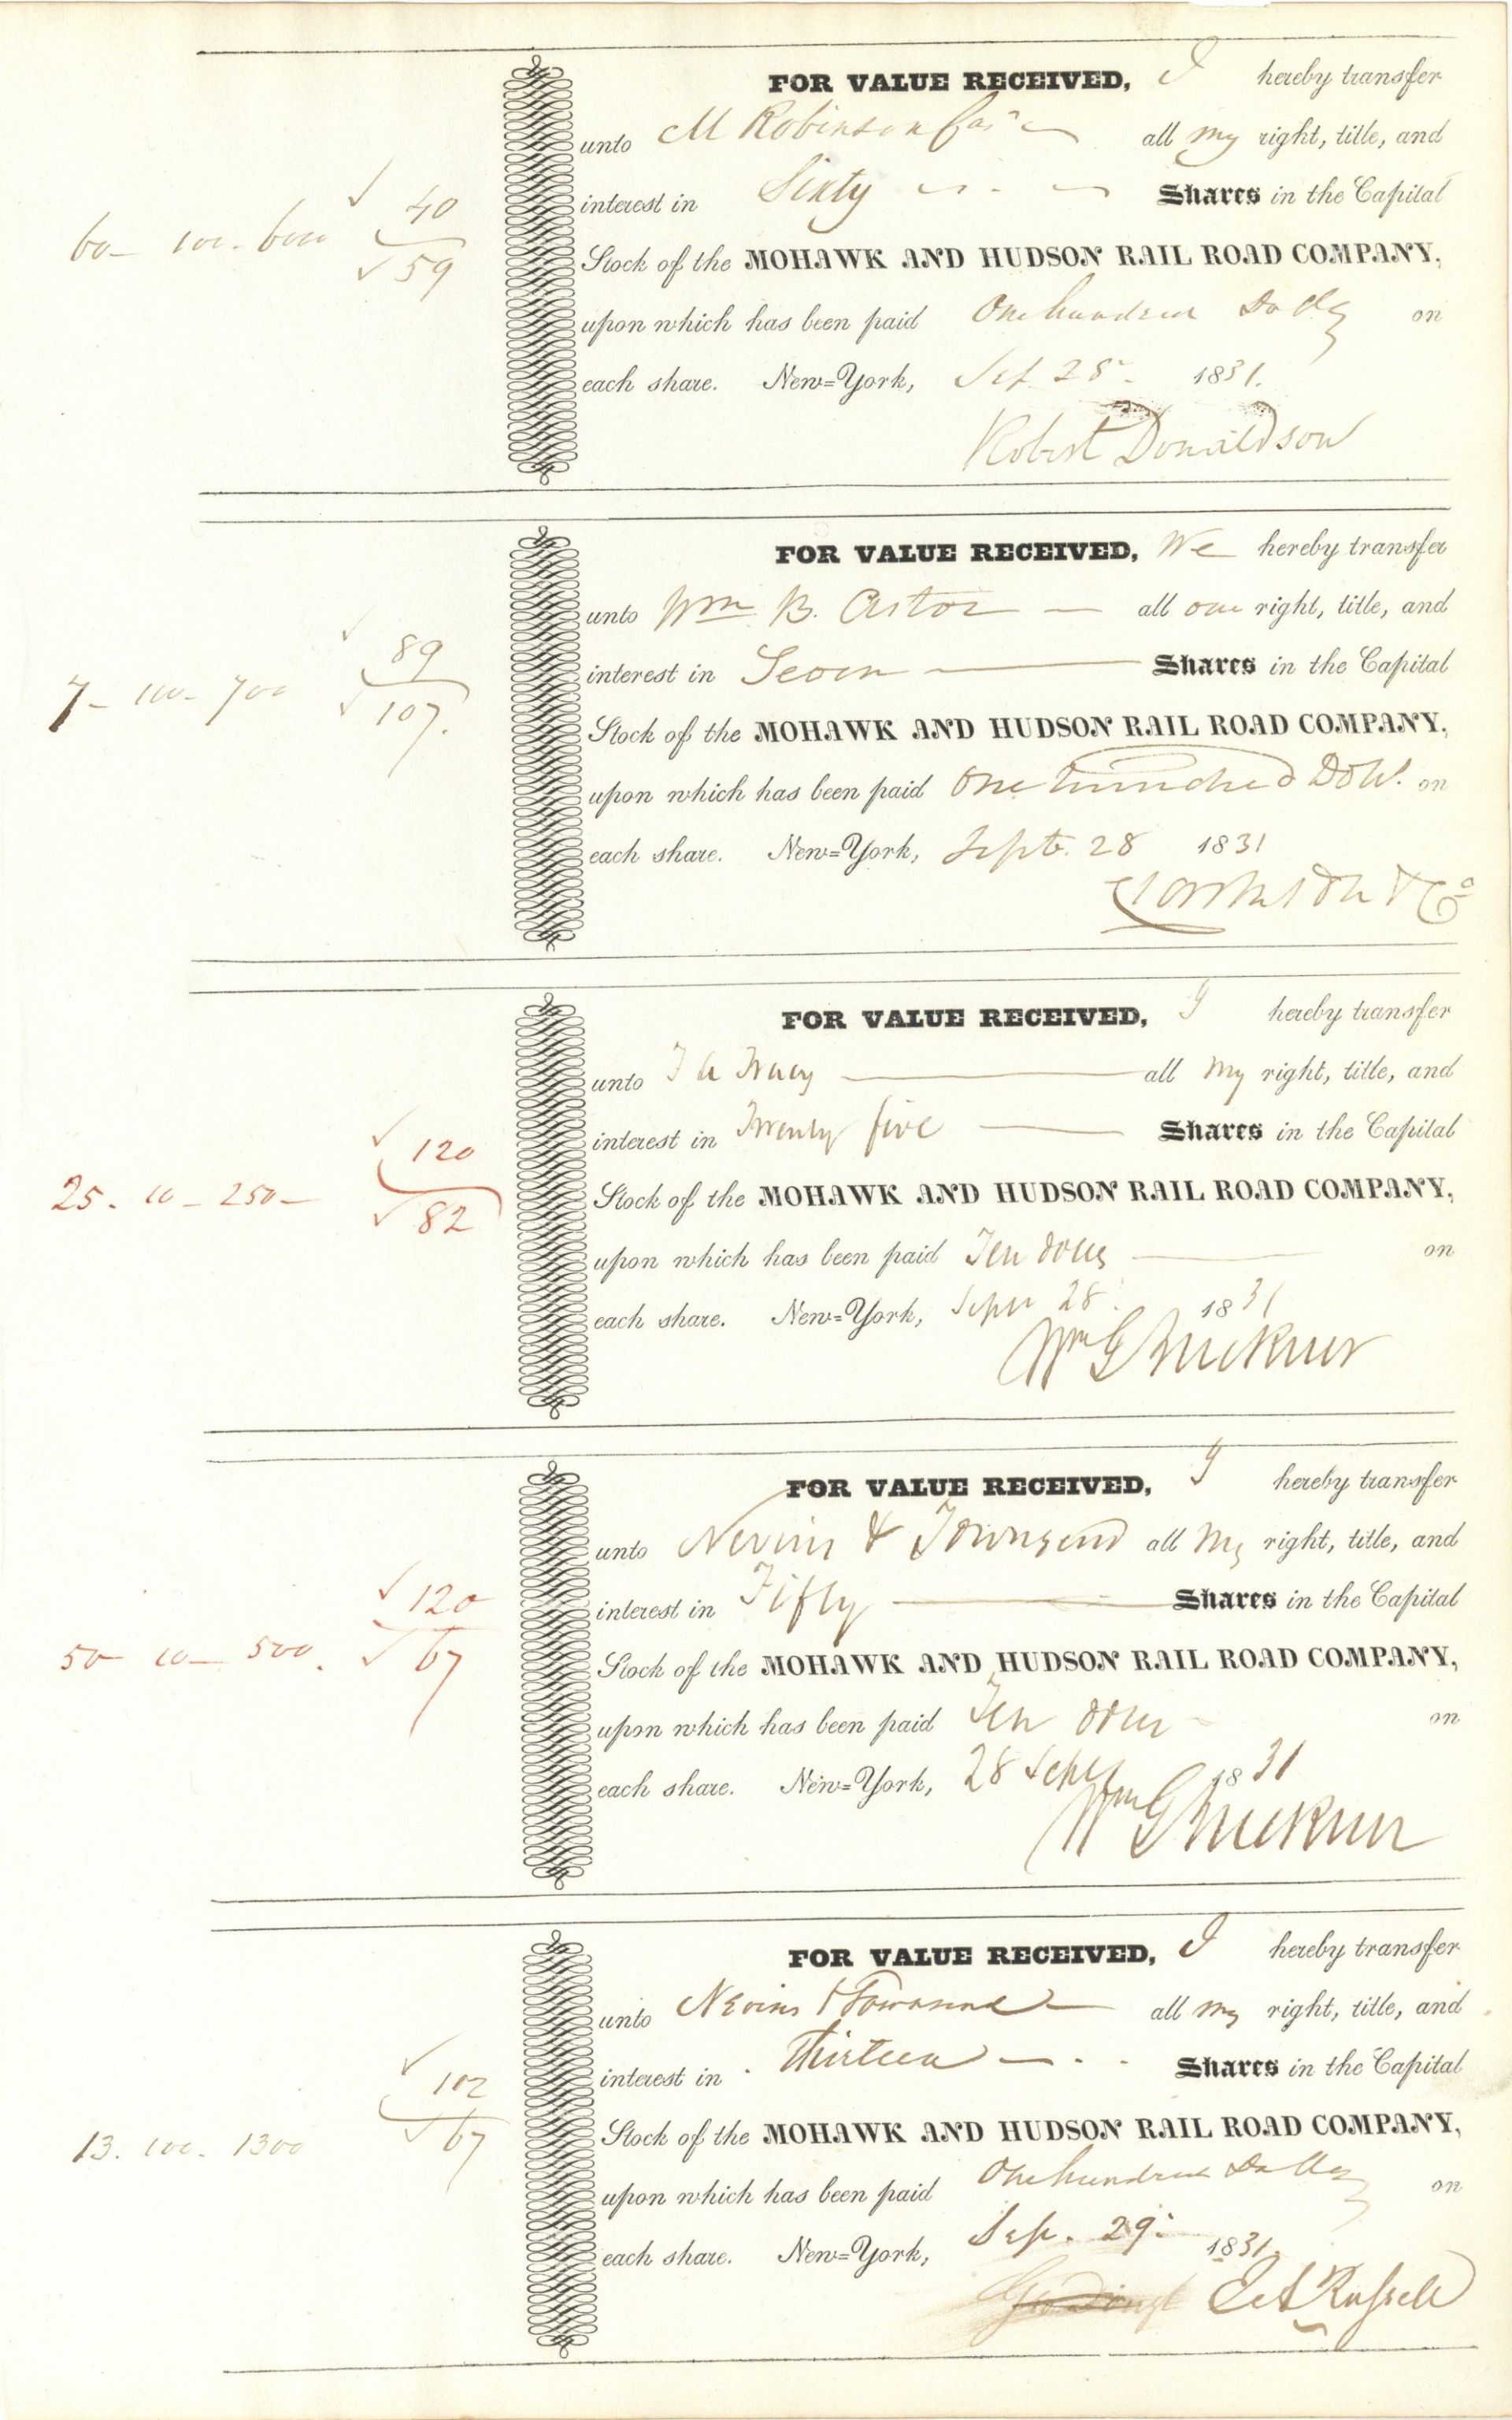 FOR VALUE RECEIVED, I hereby transfer
unto M Robinson all my right, title, and
interest in Sixty Shares in the Capital
60 - 100 - 6000 40
59
Stock of the MOHAWK AND HUDSON RAIL ROAD COMPANY,
upon which has been paid One hundred Dolls on
each share. New=York, Sept 28 1831.
Robert Donaldson
FOR VALUE RECEIVED, We hereby transfer
unto Wm B. Astor — all our right, title, and
interest in Seven — Shares in the Capital
7 - 100 - 700 89
107.
Stock of the MOHAWK AND HUDSON RAIL ROAD COMPANY,
upon which has been paid One hundred Doll. on
each share. New=York, Sept. 28 1831
& Co
FOR VALUE RECEIVED, I hereby transfer
unto Tracy — all my right, title, and
interest in Twenty five — Shares in the Capital
25. 10 - 250 - 120
82
Stock of the MOHAWK AND HUDSON RAIL ROAD COMPANY,
upon which has been paid Ten dolls — on
each share. New=York, Sept 28 1831
Wm G Buckner
FOR VALUE RECEIVED, I hereby transfer
unto Nevins & Townsend all My right, title, and
interest in Fifty — Shares in the Capital
50 - 10 - 500. 120
67
Stock of the MOHAWK AND HUDSON RAIL ROAD COMPANY,
upon which has been paid Ten dolls on
each share. New=York, 28 Sept 1831
Wm G Buckner
FOR VALUE RECEIVED, I hereby transfer
unto Nevins & Townsend — all my right, title, and
interest in Thirteen — Shares in the Capital
13. 100. 1300 102
67
Stock of the MOHAWK AND HUDSON RAIL ROAD COMPANY,
upon which has been paid One hundred Dolls on
each share. New=York, Sep. 29. 1831.
Russell